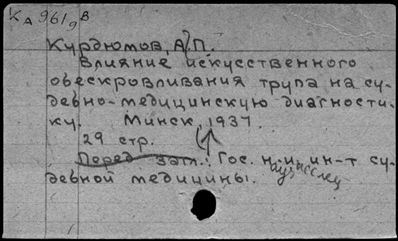 КА 961/9 В
Курдюмов, А.П.
Влияние искусственного
обескровливания трупа на су-
дебно-медицинскую диагности-
ку. Минск, 1937.
29 стр.
Перед загл.: Гос. н.-и. ин-т су-
дебной медицины.